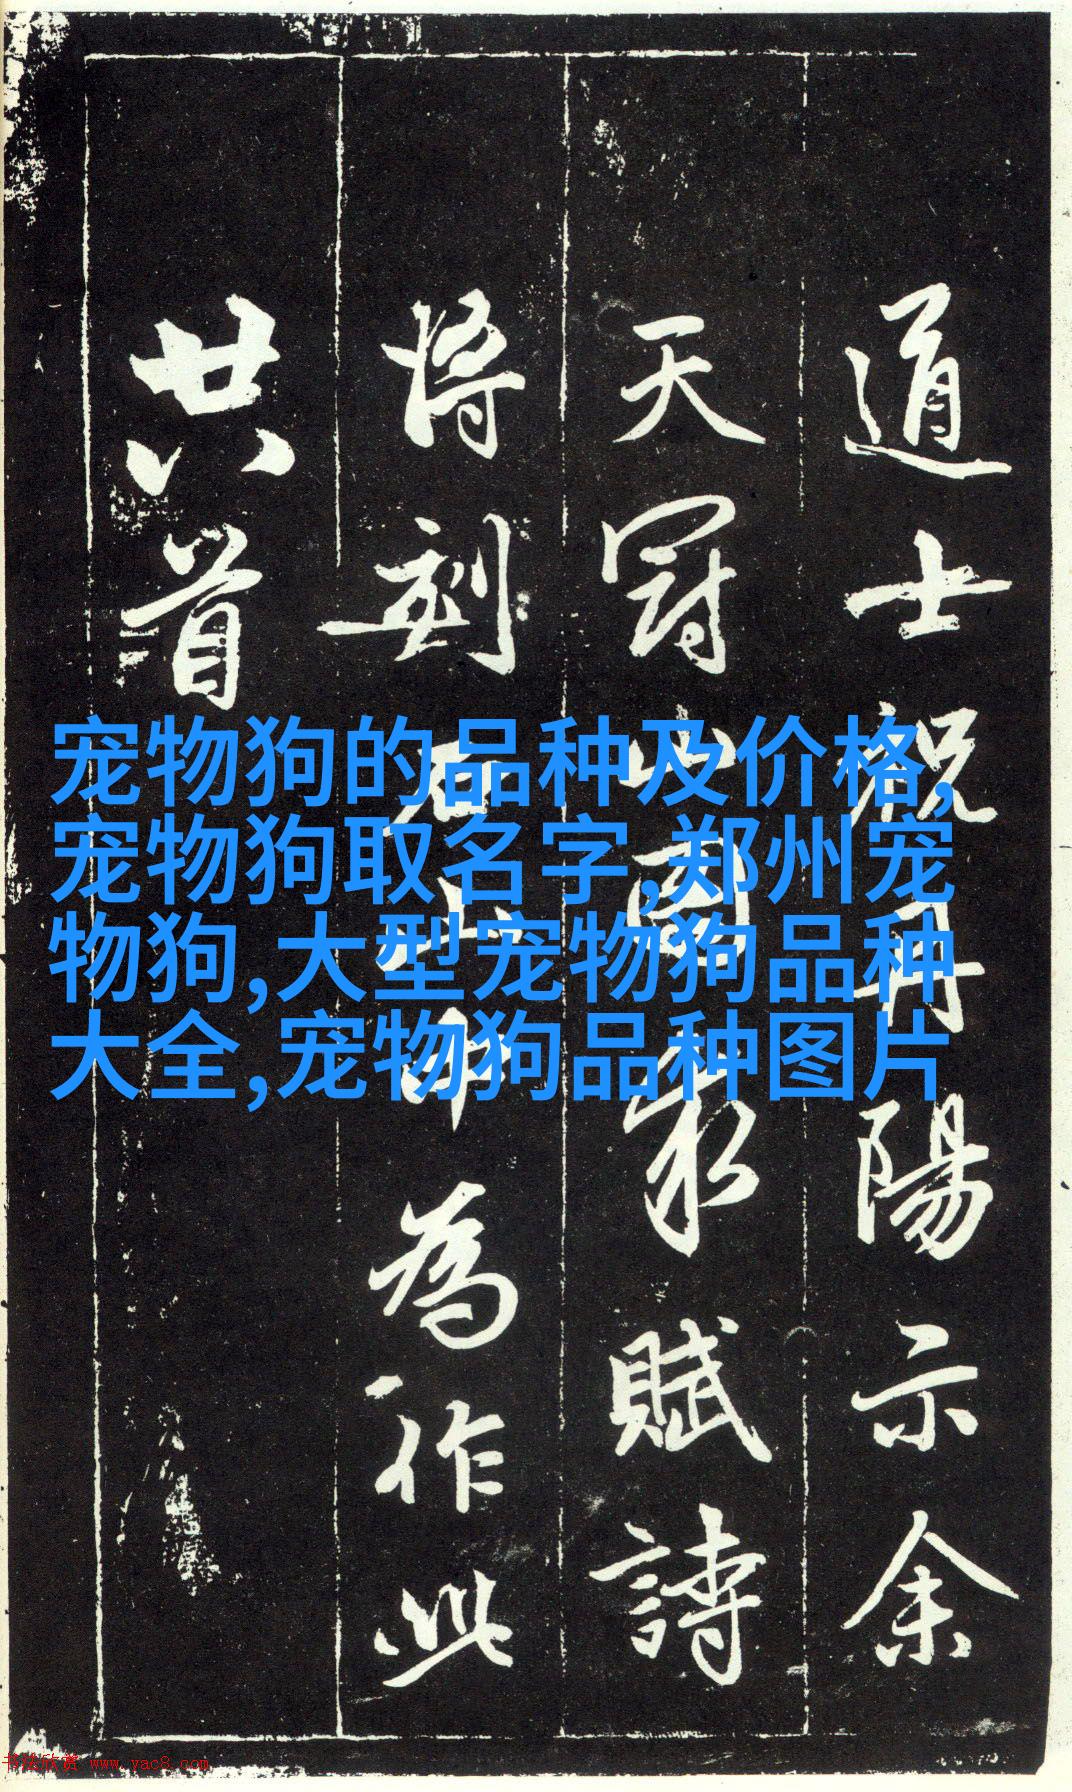 道士祝丹陽示余
天冠山圖求賦詩
將刻石山中為作此
廿八首
宠物狗的品种及价格,
宠物狗取名字,郑州宠
物狗,大型宠物狗品种
大全,宠物狗品种图片
书法欣赏 www.yac8.com